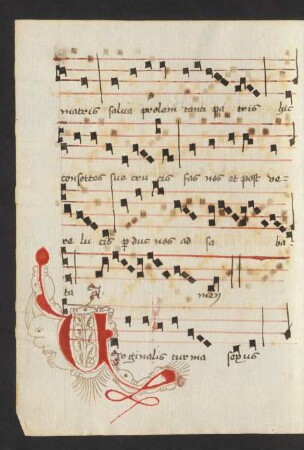 matris salua prolem tanti pa tris hic
consortes sue cru cis fac nos et post ve-
re lu cis p duc nos ad sa ba-
ta A men
V irginalis turma sexus